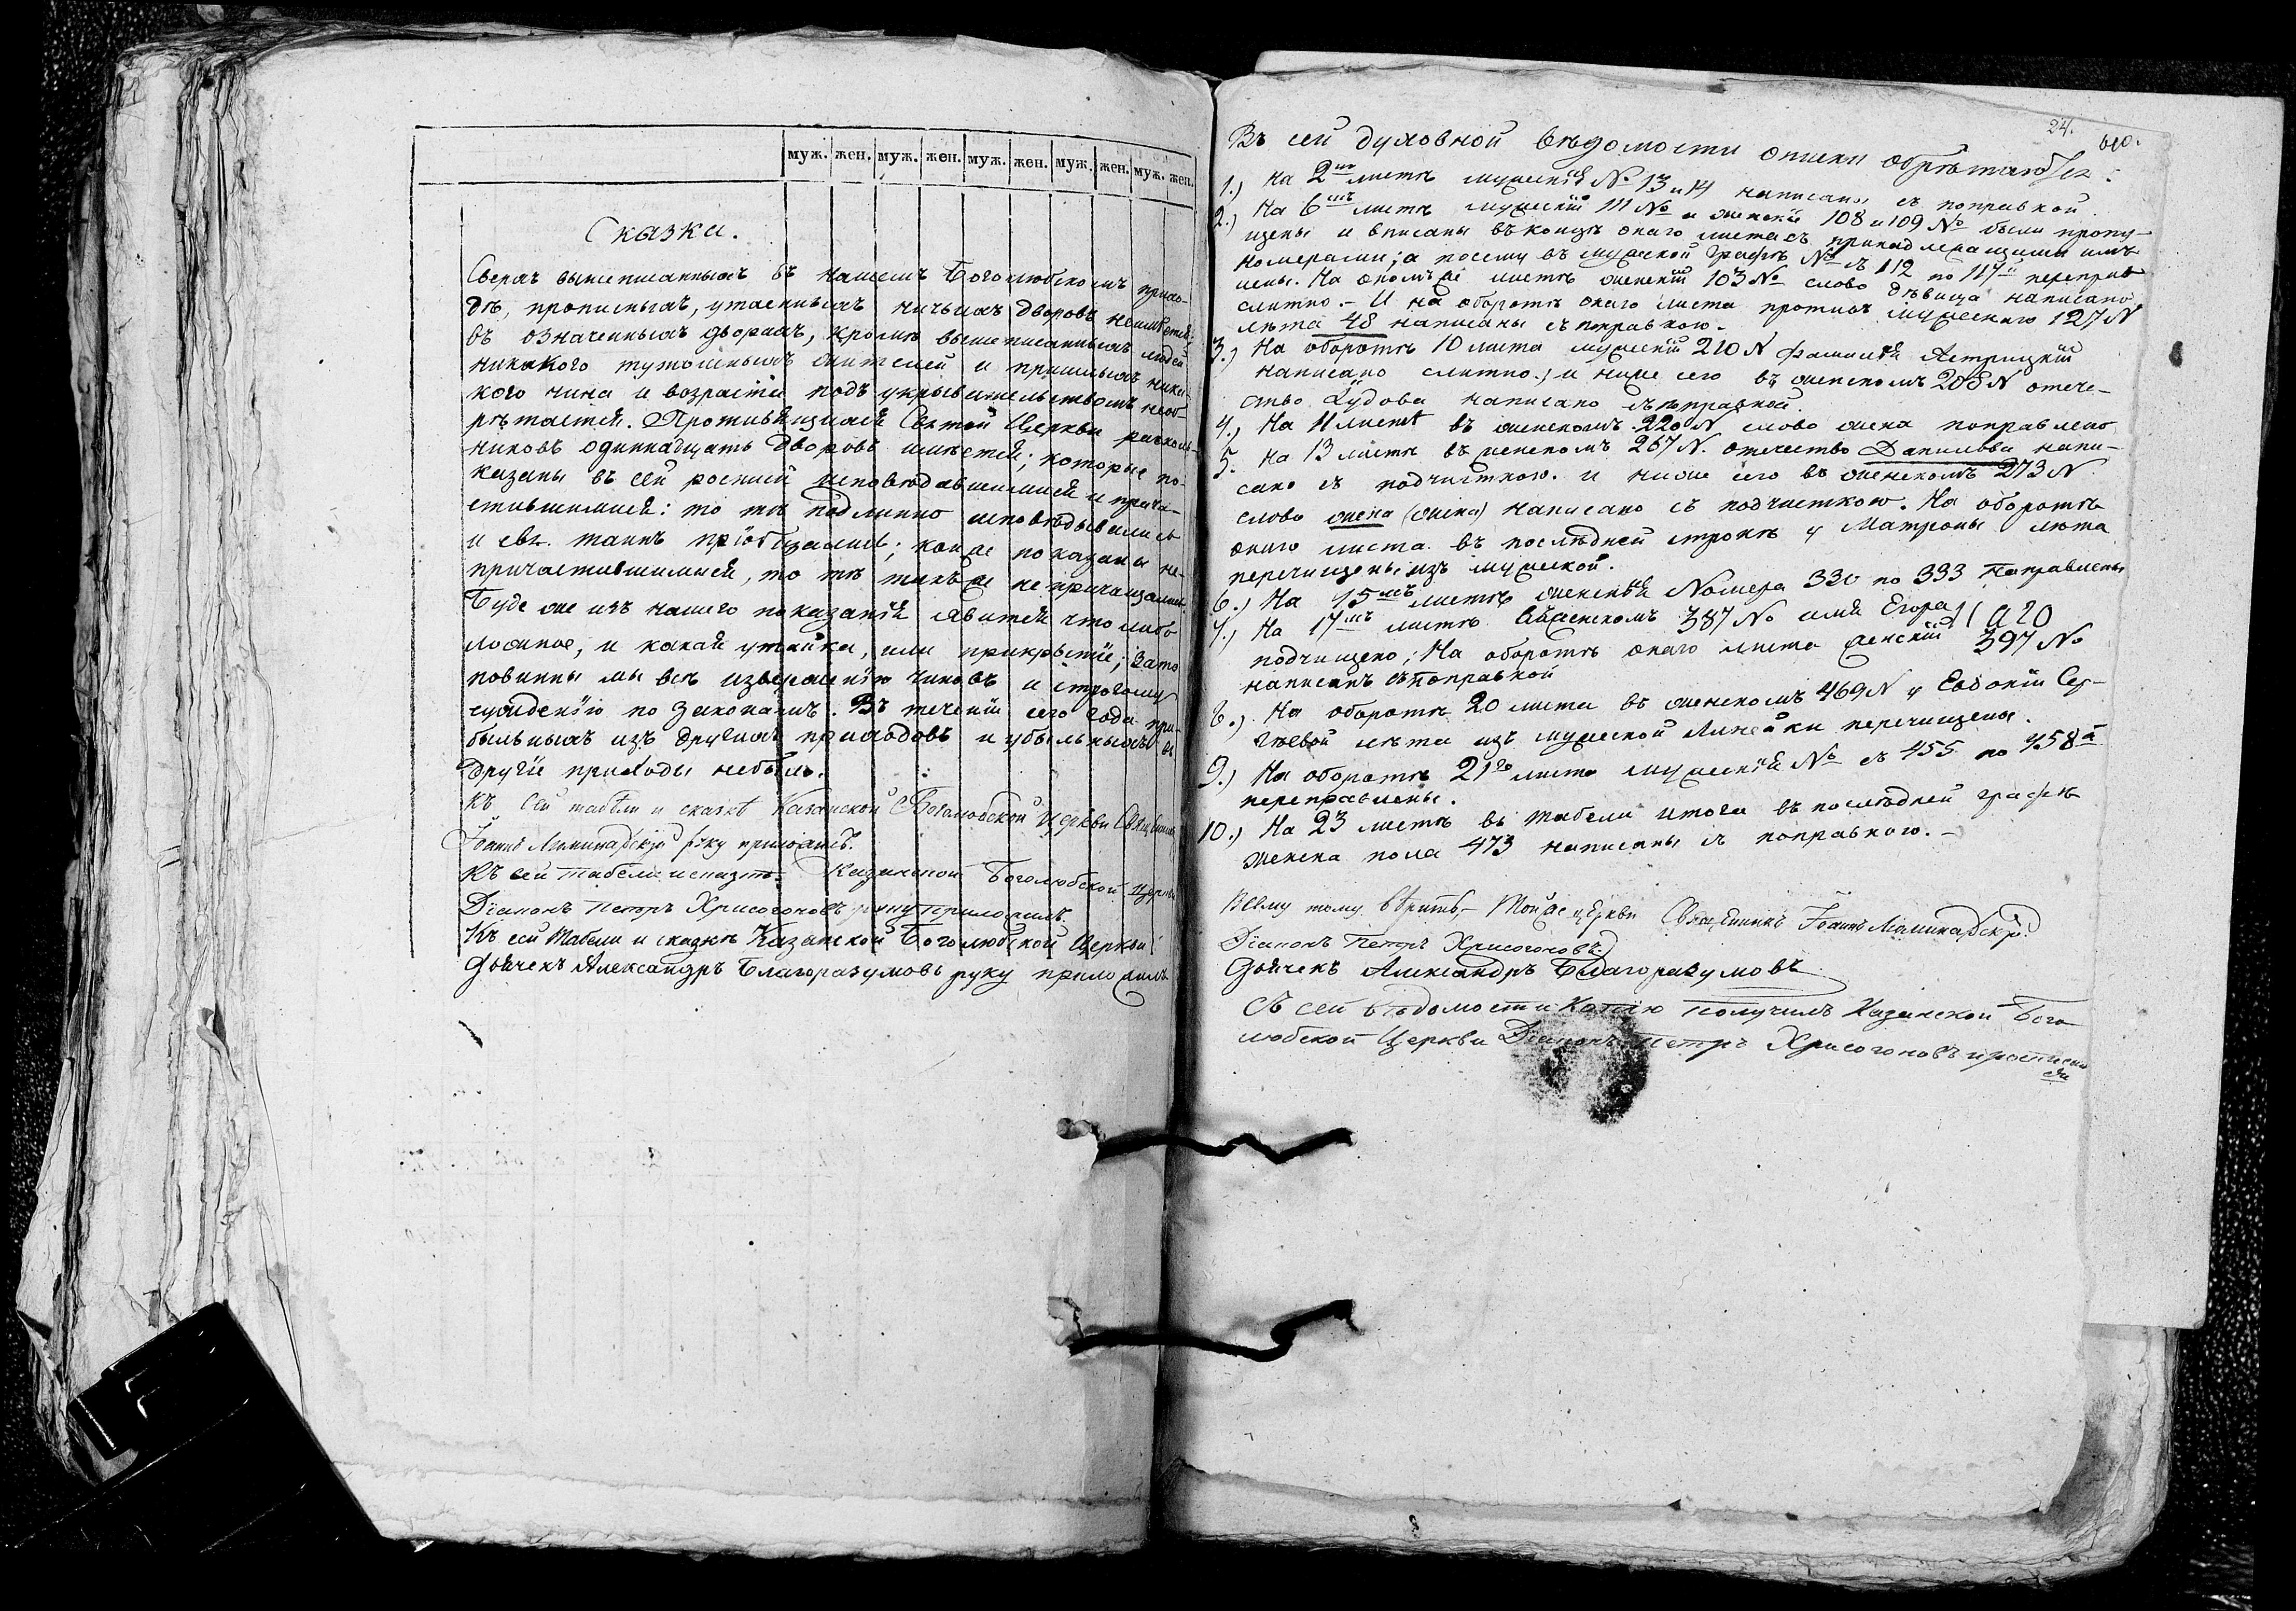 муж. жен. муж. жен. муж. жен. муж. жен. муж. жен.
Сказка.
Сверхъ вышеписанныхъ въ нашемъ Боголюбскомъ прихо-
дѣ, прописныхъ, утаенныхъ ничьихъ дворовъ неимѣется;
въ означенныхъ дворахъ, кромѣ вышеписанныхъ людей
никакого тутошныхъ жителей и пришлыхъ ника-
кого чина и возраста подъ укрывательствомъ необ-
рѣтается. Противящихся Святой Церкви расколь-
никовъ одиннадцать дворовъ имѣется; которые по-
казаны въ сей росписи исповѣдавшимися и прича-
стившимися: то тѣ подлинно исповѣдывались
и свт. таинъ пріобщались; кои же показаны не-
причастившимися, то тѣ такъ же не причащались.
Буде же изъ нашего показанія явится что либо
ложное, и какая утайка, или прикрытіе; зато
повинны мы всѣ изверженію чиновъ и строгому
сужденію по законамъ. Въ теченіи сего года при-
быльныхъ изъ другихъ приходовъ и убыльныхъ въ
другіе приходы небыло.
Къ сей табели и сказкѣ Казанской Боголюбской Церкви Священникъ
Іоаннъ руку приложилъ.
Къ сей табели и сказкѣ Казанской Боголюбской Церкви
Діаконъ Петръ Хрисогоновъ руку приложилъ.
Къ сей Табели и сказкѣ Казанской Боголюбской Церкви
Дьячекъ Александръ Благоразумовъ руку приложилъ
24.
Въ сей духовной вѣдомости описки обрѣтаются:
1.) На 2мъ листѣ мужескія № 13 и 14 написаны съ поправкой.
2.) На 6мъ листѣ мужескій 111 № и женскіе 108 и 109 № были пропу-
щены и вписаны въ концѣ онаго листа съ принадлежащими имъ
номерами; а посему въ мужской графѣ № съ 112 по 117й переправ-
лены. На ономъ же листѣ женскій 103 № слово дѣвица написано
слитно. - И на оборотѣ онаго листа противъ мужескаго 127 №
лѣта 48 написаны съ поправкою.
3.) На оборотѣ 10 листа мужескій 210 № фамилія Ястрицкій
написано слитно.; и ниже сего въ женскомъ 208 № отече-
ство написано съ поправкой.
4.) На 11 листѣ въ женскомъ 220 № слово жена поправлено
5. На 13 листѣ въ женскомъ 267 №. отечество Данилова напи-
сано съ подчисткою. и ниже сего въ женскомъ 273 №
слово жена (жена) написано съ подчисткою. На оборотѣ
онаго листа въ послѣдней строкѣ у Матроны лѣта
перечищены изъ мужской.
6.) На 15мъ листѣ женскія Номера 330 по 333 поправлены
7.) На 17мъ листѣ въ женскомъ 387 № имя Егора
подчищено; На оборотѣ онаго листа женскій 397 №
написанъ съ поправкой
8.) На оборотѣ 20 листа въ женскомъ 469 № у Евдокіи Сер-
гѣевой лѣта изъ мужеской линейки перечищены.
9.) На оборотѣ 21го листа мужескія № съ 455 по 458й
переправлены.
10.) На 23 листѣ въ табели итоги въ послѣдней графѣ
женска пола 473 написаны съ поправкою.-
Всему тому вѣрить.- Той же церкви Священникъ Іоаннъ
Діаконъ Петръ Хрисогоновъ
Дьячекъ Александръ Благоразумовъ
Съ сей вѣдомости Копію получилъ Казанской Бого-
любской Церкви Діаконъ Петръ Хрисогоновъ и росписал-
ся